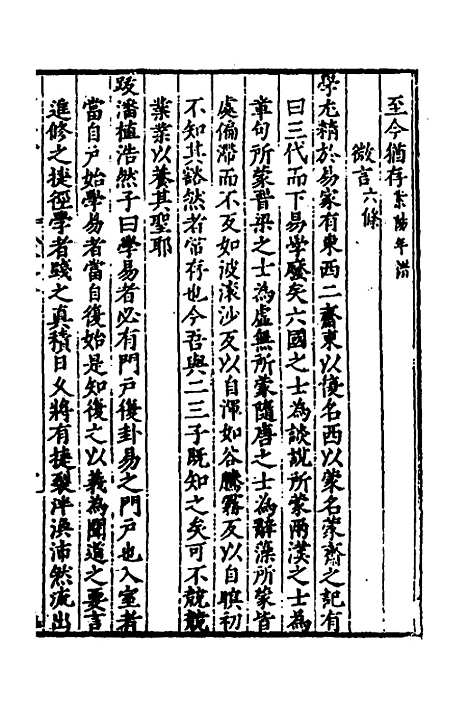 至今猶存紫陽年譜
微言六條
學尤精於易家有東西二齋東以復名西以蒙名蒙齋之記有
曰三代而下易學廢矣六國之士為談說所蒙兩漢之士為
章句所蒙晉梁之士為虛無所蒙隨唐之士為辭藻所蒙皆
處偏滯而不反如波滚沙反以自渾如谷騰霧反以自暝初
不知其豁然者常存也今吾與二三子既知之矣可不兢兢
業業以養其聖耶
跋潘植浩然子曰學易者必有門戶復卦易之門戶也入室者
當自戶始學易者當自復始是知復之以義為聞道之要言
進修之捷徑學者踐之真積日久將有捷發泮渙沛然流出